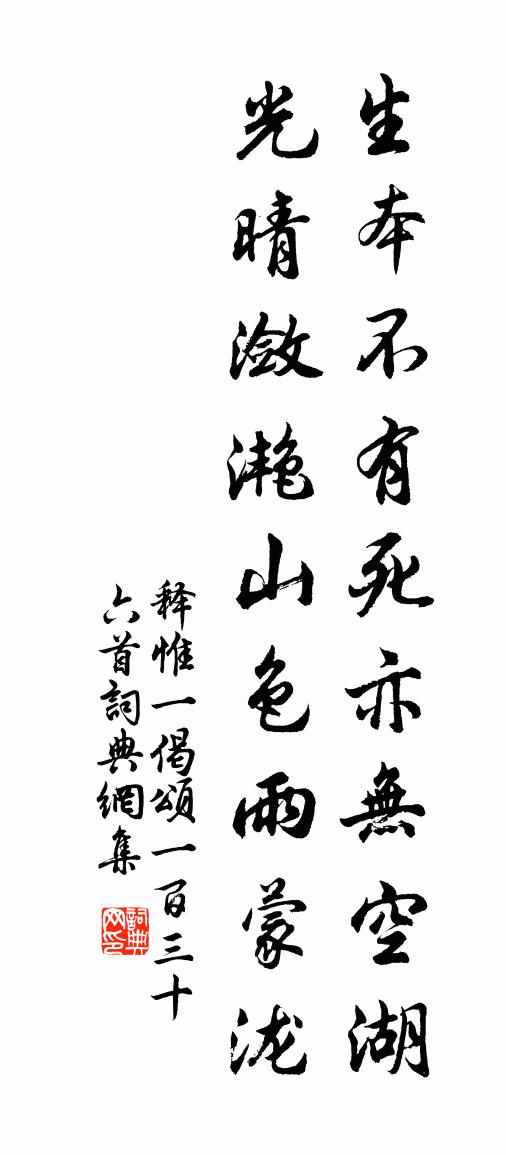 生本不有死亦無空湖
光晴瀲灔山色雨蒙泷
释惟一偈頌一百三十
六首詞典網集
詞典
网印